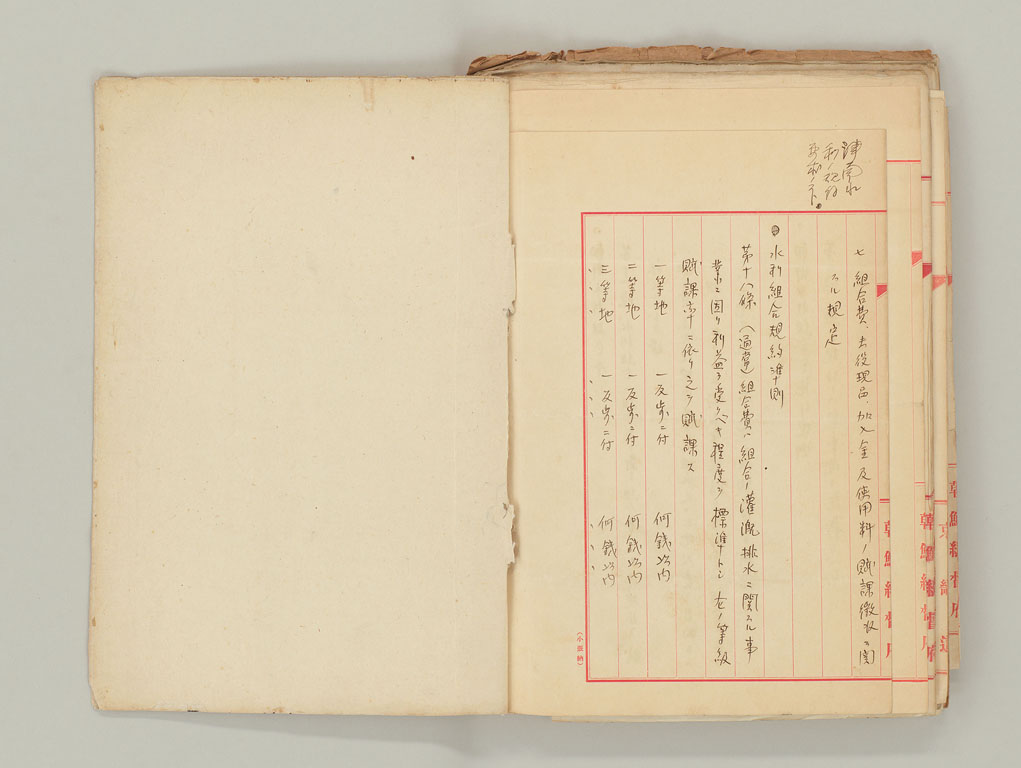 七 組合費、夫役現品、加入金及使用料ノ賦課徴収ニ関
スル規定
水利組合規約準則
第十八條 (通常)組合費ハ組合ノ灌漑排水ニ関スル事
業ニ因リ利益ヲ受クヘキ程度ヲ標準トシ左ノ等級
賦課率ニ依リ之ヲ賦課ス
一等地 一反歩ニ付 何銭以内
二等地 一反歩ニ付 何銭以内
三等地 一反歩ニ付 何銭以内
、、、 、、、 、、、
朝鮮総督府
朝鮮総督府
朝鮮総督府